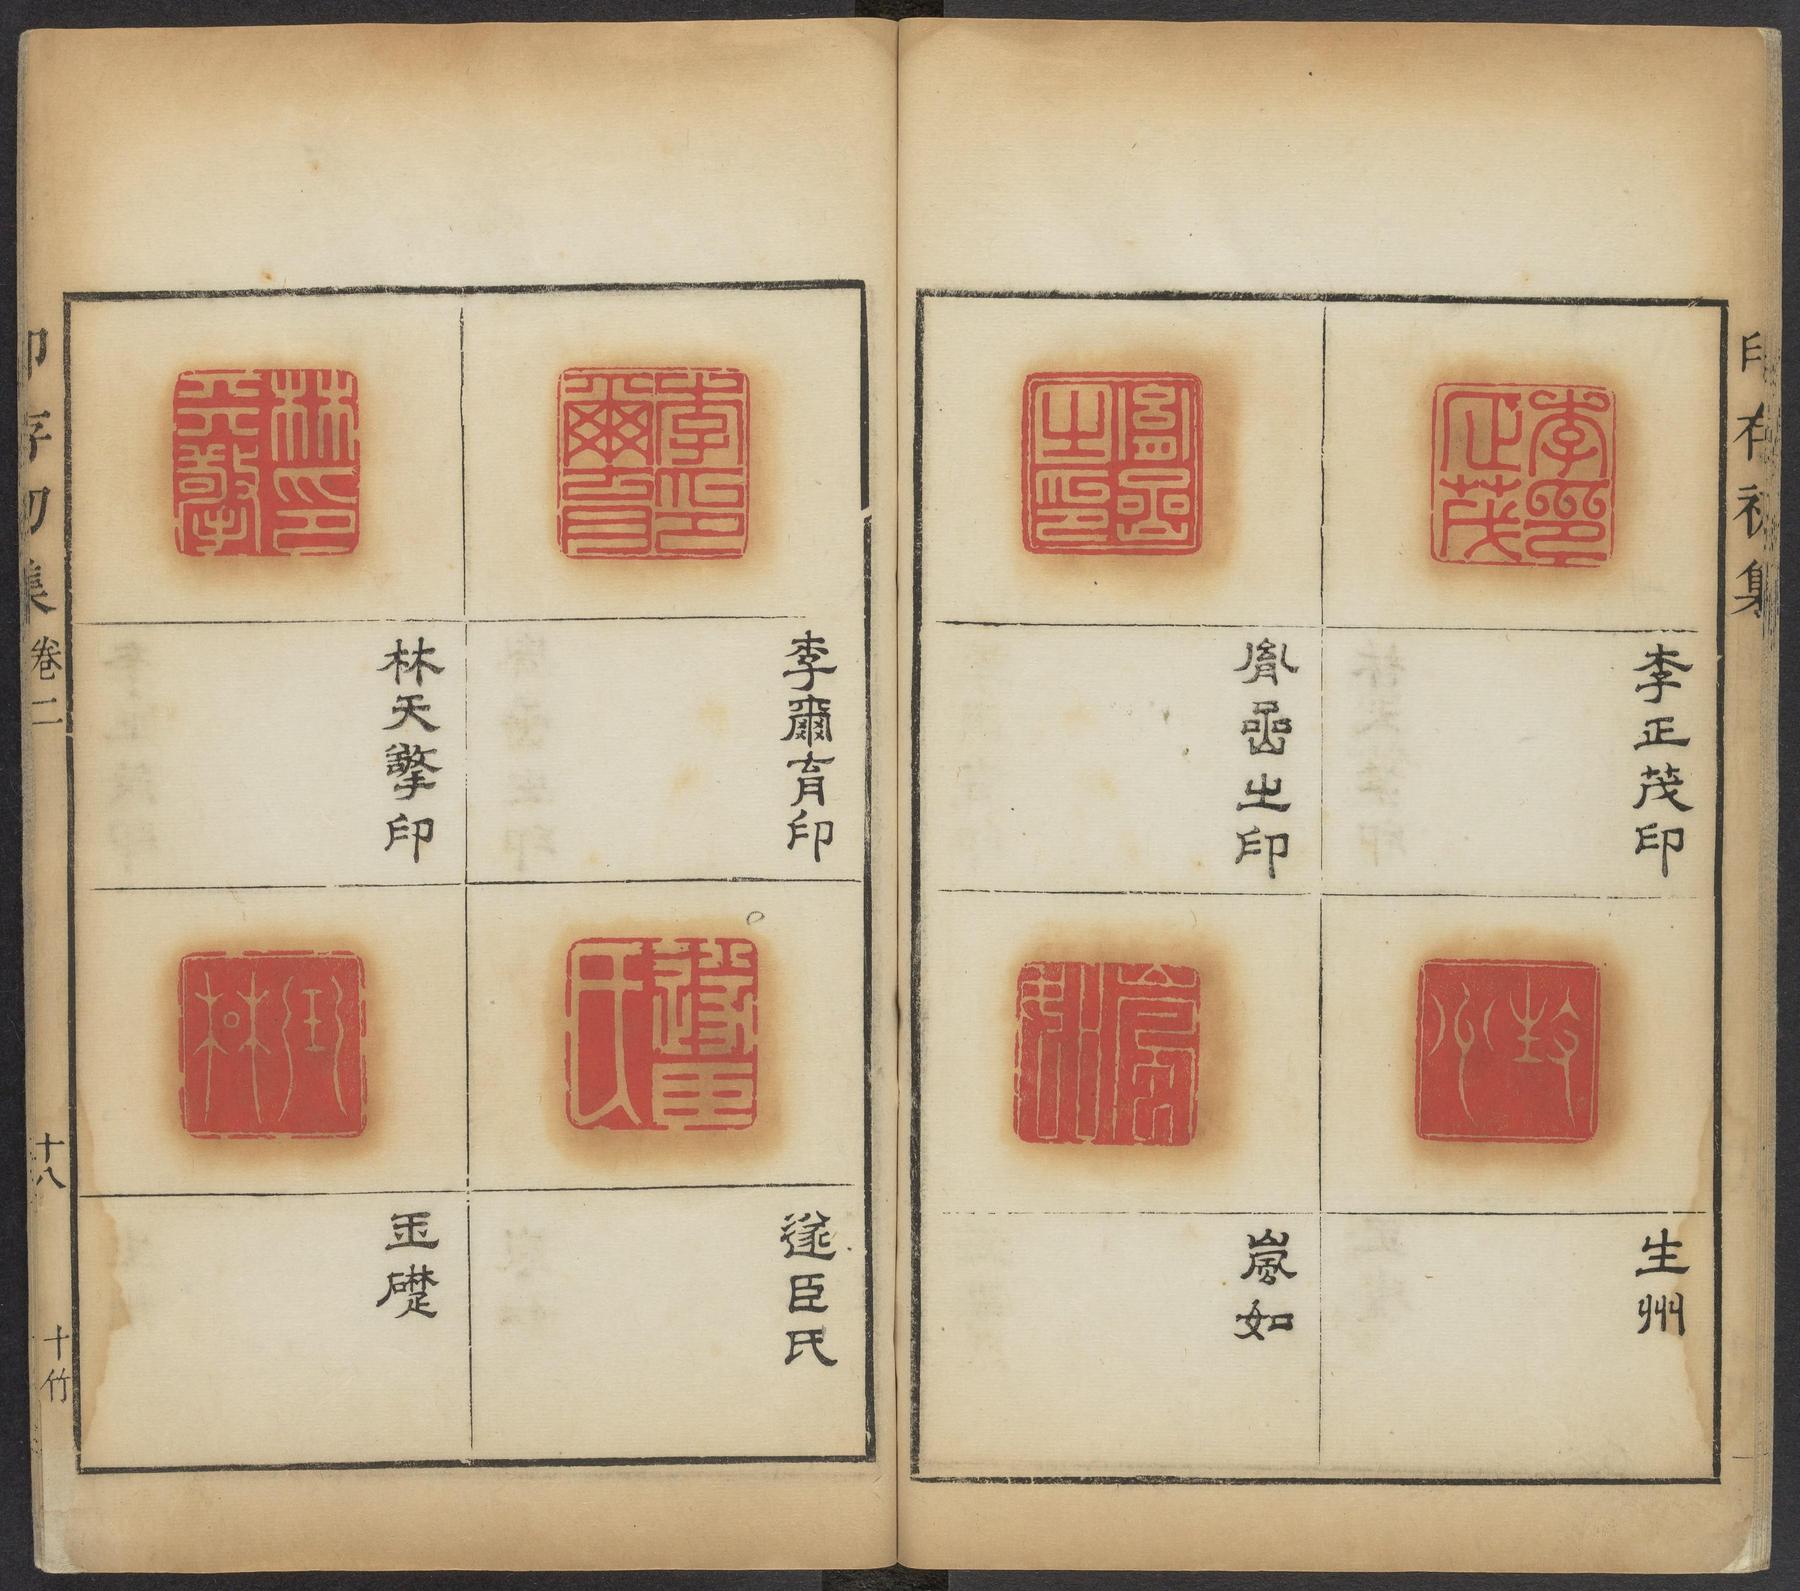 印存初集
李正茂印
胤嵒之印
生州
嵐如
李爾育印
林天擎印
遂臣氏
玉礎
印存初集
卷二
十八
十竹